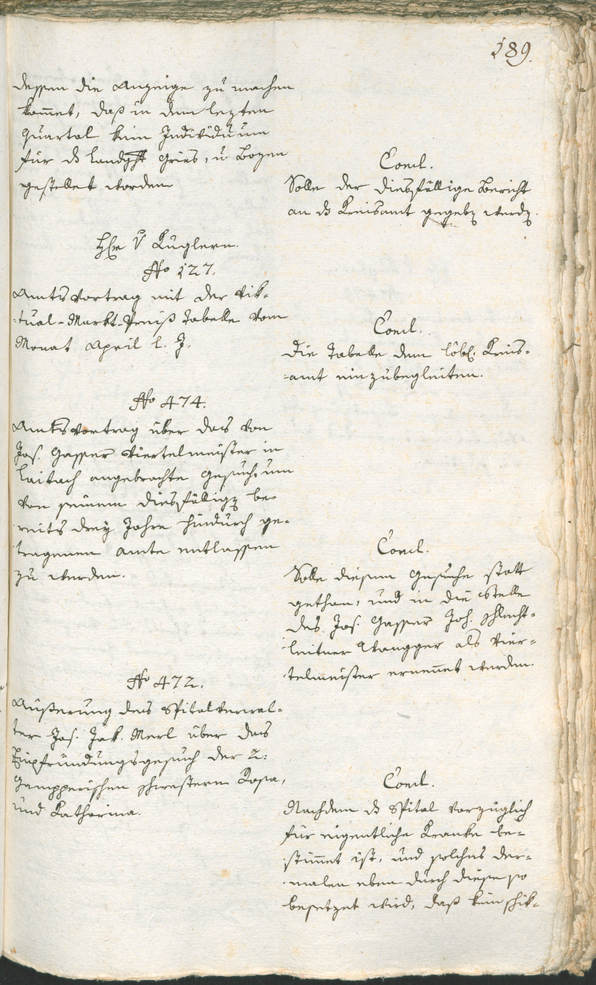 189.
dessen die Anzeige zu machen
kom̅et, daß in dem lezten
Quartal kein Individuum
für ds Landgft Gries, u Bozen
gestellet worden
Concl.
Solle der diesfällige Bericht
an ds Kreisamt gegebn werdn.
H V Kuglern.
No 127.
Amtsvortrag mit der Vik-
tual-Markt-Preiß Tabelle vom
Monat April l. J.
Concl.
Die Tabelle dem löbl. Kreis-
amt einzubegleiten.
No 474.
Amtsvortrag über das von
Jos. Gasser Viertelmeister in
Leitach angebrachte Gesuch, um
von seinem diesfälligen be-
reits drey Jahre hindurch ge-
tragenen Amte entlassen
zu werden.
Concl.
Solle diesem Gesuche statt
gethan, und in die Stelle
des Jos. Gasser Joh. Schlecht-
leitner als Vier-
telmeister ernen̅et werden.
No 472.
Äußerung des Spitalverwal-
ter Jos. Jak. Merl über das
Einpfründungsgesuch der 2.
Gempperischen Schwestern Rosa,
und Katharina.
Concl.
Nachdem ds Spital vorzüglich
für eigentliche Kranke be-
stim̅et ist, und solches der-
malen eben durch diese so
besetzet wird, daß kein schik-